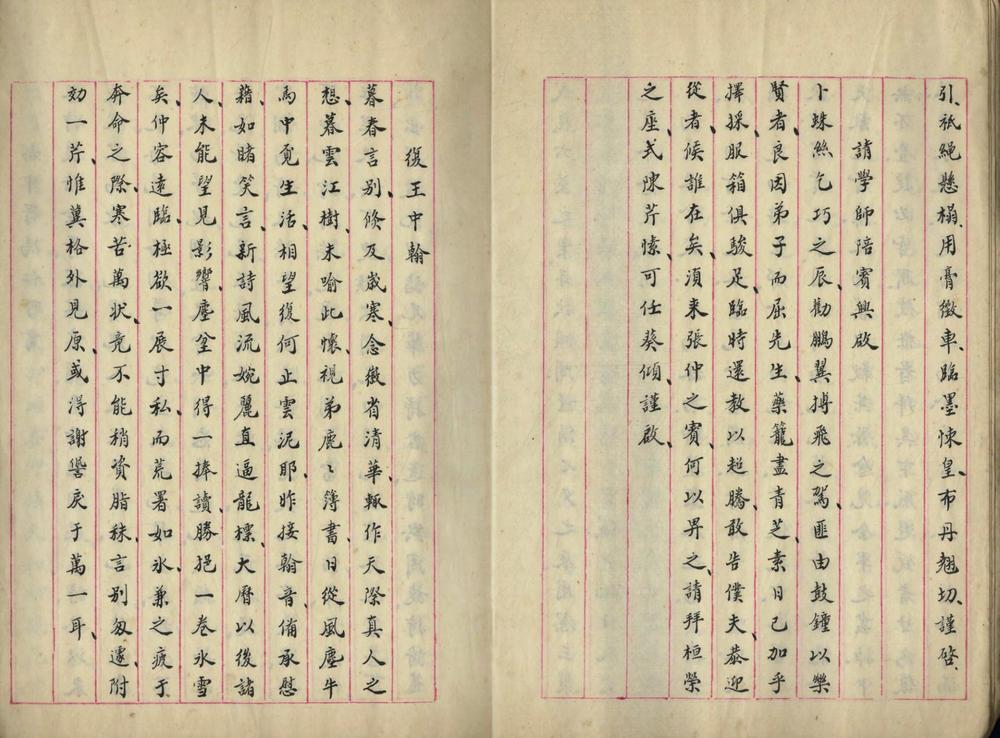 引、祇繩懸榻、用膏徵車、臨墨悚皇、布丹翹切、謹啓、
請學師陪賓興啟
卜蛛絲乞巧之辰、勸鵬翼搏飛之駕、匪由鼓鐘以樂
賢者、良因弟子而屈先生、藥籠盡青芝、素日已加乎
擇採、服箱俱駿足、臨時還教以超騰、敢告僕夫、恭迎
從者、候誰在矣、須来張仲之賓、何以畀之、請拜桓榮
之座、式陳芹愫、可任葵傾、謹啟、
復王中翰
暮春言别、倏及歲寒、念徽省清華、輒作天際真人之
想、暮雲江樹、未喻此懷、視弟鹿鹿簿書、日從風塵牛
馬中覓生活、相望復何止雲泥耶、昨接翰音、備承慰
藉、如睹笑言、新詩風流婉麗、直逼龍標、大曆以後諸
人、未能望見影響、塵坌中得一捧讀、勝挹一卷氷雪
矣、仲容遠臨、極欲一展寸私、而荒署如氷、兼之疲于
奔命之際、寒苦萬状、竟不能稍資脂秣、言别匆遽、附
効一芹、惟冀格外見原、或淂謝諐戾于萬一耳、